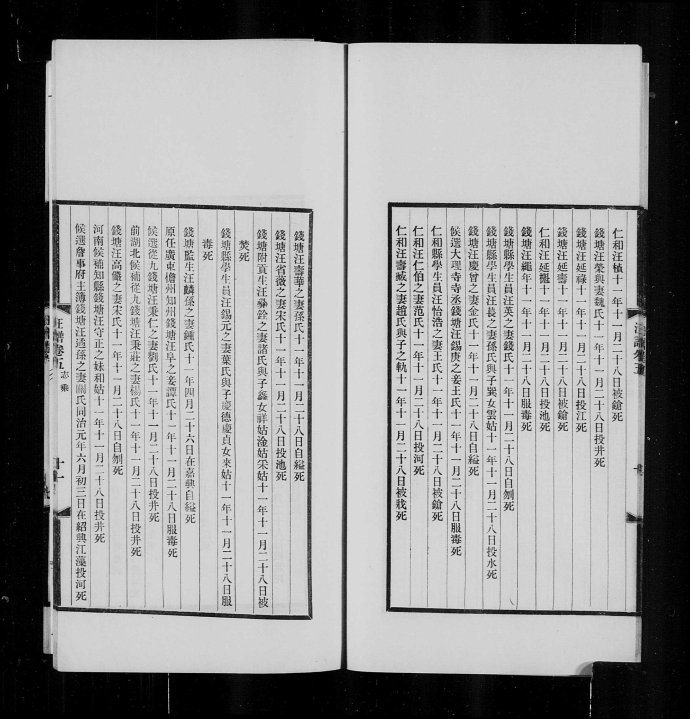 仁和汪楨十一年十一月二十八日被鎗死
錢塘汪榮與妻魏氏十一年十一月二十八日投井死
錢塘汪延祿十一年十一月二十八日投江死
錢塘汪延壽十一年十一月二十八日被鎗死
仁和汪延 十一年十一月二十八日投池死
錢塘汪繩年十一年十一月二十八日服毒死
錢塘縣學生員汪英之妻錢氏十一年十一月二十八日自刎死
錢塘縣學生員汪長之妻孫氏與子巽女雲姑十一年十一月二十八日投水死
錢塘汪慶曾之妻金氏十一年十一月二十八日自縊死
候選大理寺寺丞錢塘汪錫庚之妾王氏十一年十一月二十八日服毒死
仁和縣學生員汪怡浩之妻王氏十一年十一月二十八日被鎗死
仁和汪仁伯之妻范氏十一年十一月二十八日投河死
仁和汪壽威之妻趙氏與子之軌十一年十一月二十八日被戕死
錢塘汪壽華之妻孫氏十一年十一月二十八日自縊死
錢塘汪省薇之妻宋氏十一年十一月二十八日投池死
錢塘附貢生汪 銓之妻諸氏與子鑫女祥姑淦姑 姑十一年十一月二十八日被
焚死
錢塘縣學生員汪錫元之妻葉氏與子慶德慶貞女來姑十一年十一月二十八日服
毒死
錢塘監生汪麟孫之妻鍾氏十一年四月二十六日在嘉興自縊死
原任廣東儋州知州錢塘汪阜之妾譚氏十一年十一月二十八日服毒死
候選從九錢塘汪秉仁之妻劉氏十一年十一月二十八日投井死
前湖北候補從九錢塘汪秉莊之妻楊氏十一年十一月二十八日投井死
錢塘汪高儀之妻宋氏十一年十一月二十八日自刎死
河南候補知縣錢塘汪守正之妹和姑十一年十一月二十八日投井死
候選詹事府主簿錢塘汪适孫之妻關氏同治元年六月初三日在紹興江 投河死
汪譜卷五 志乘
十一